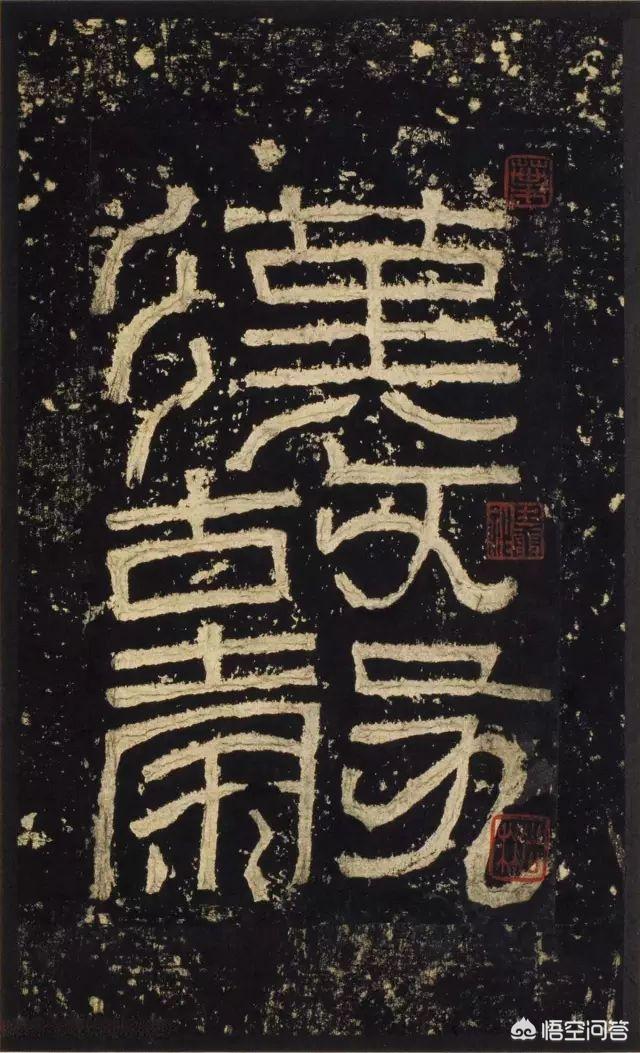 漢
故
穀
悟空问答